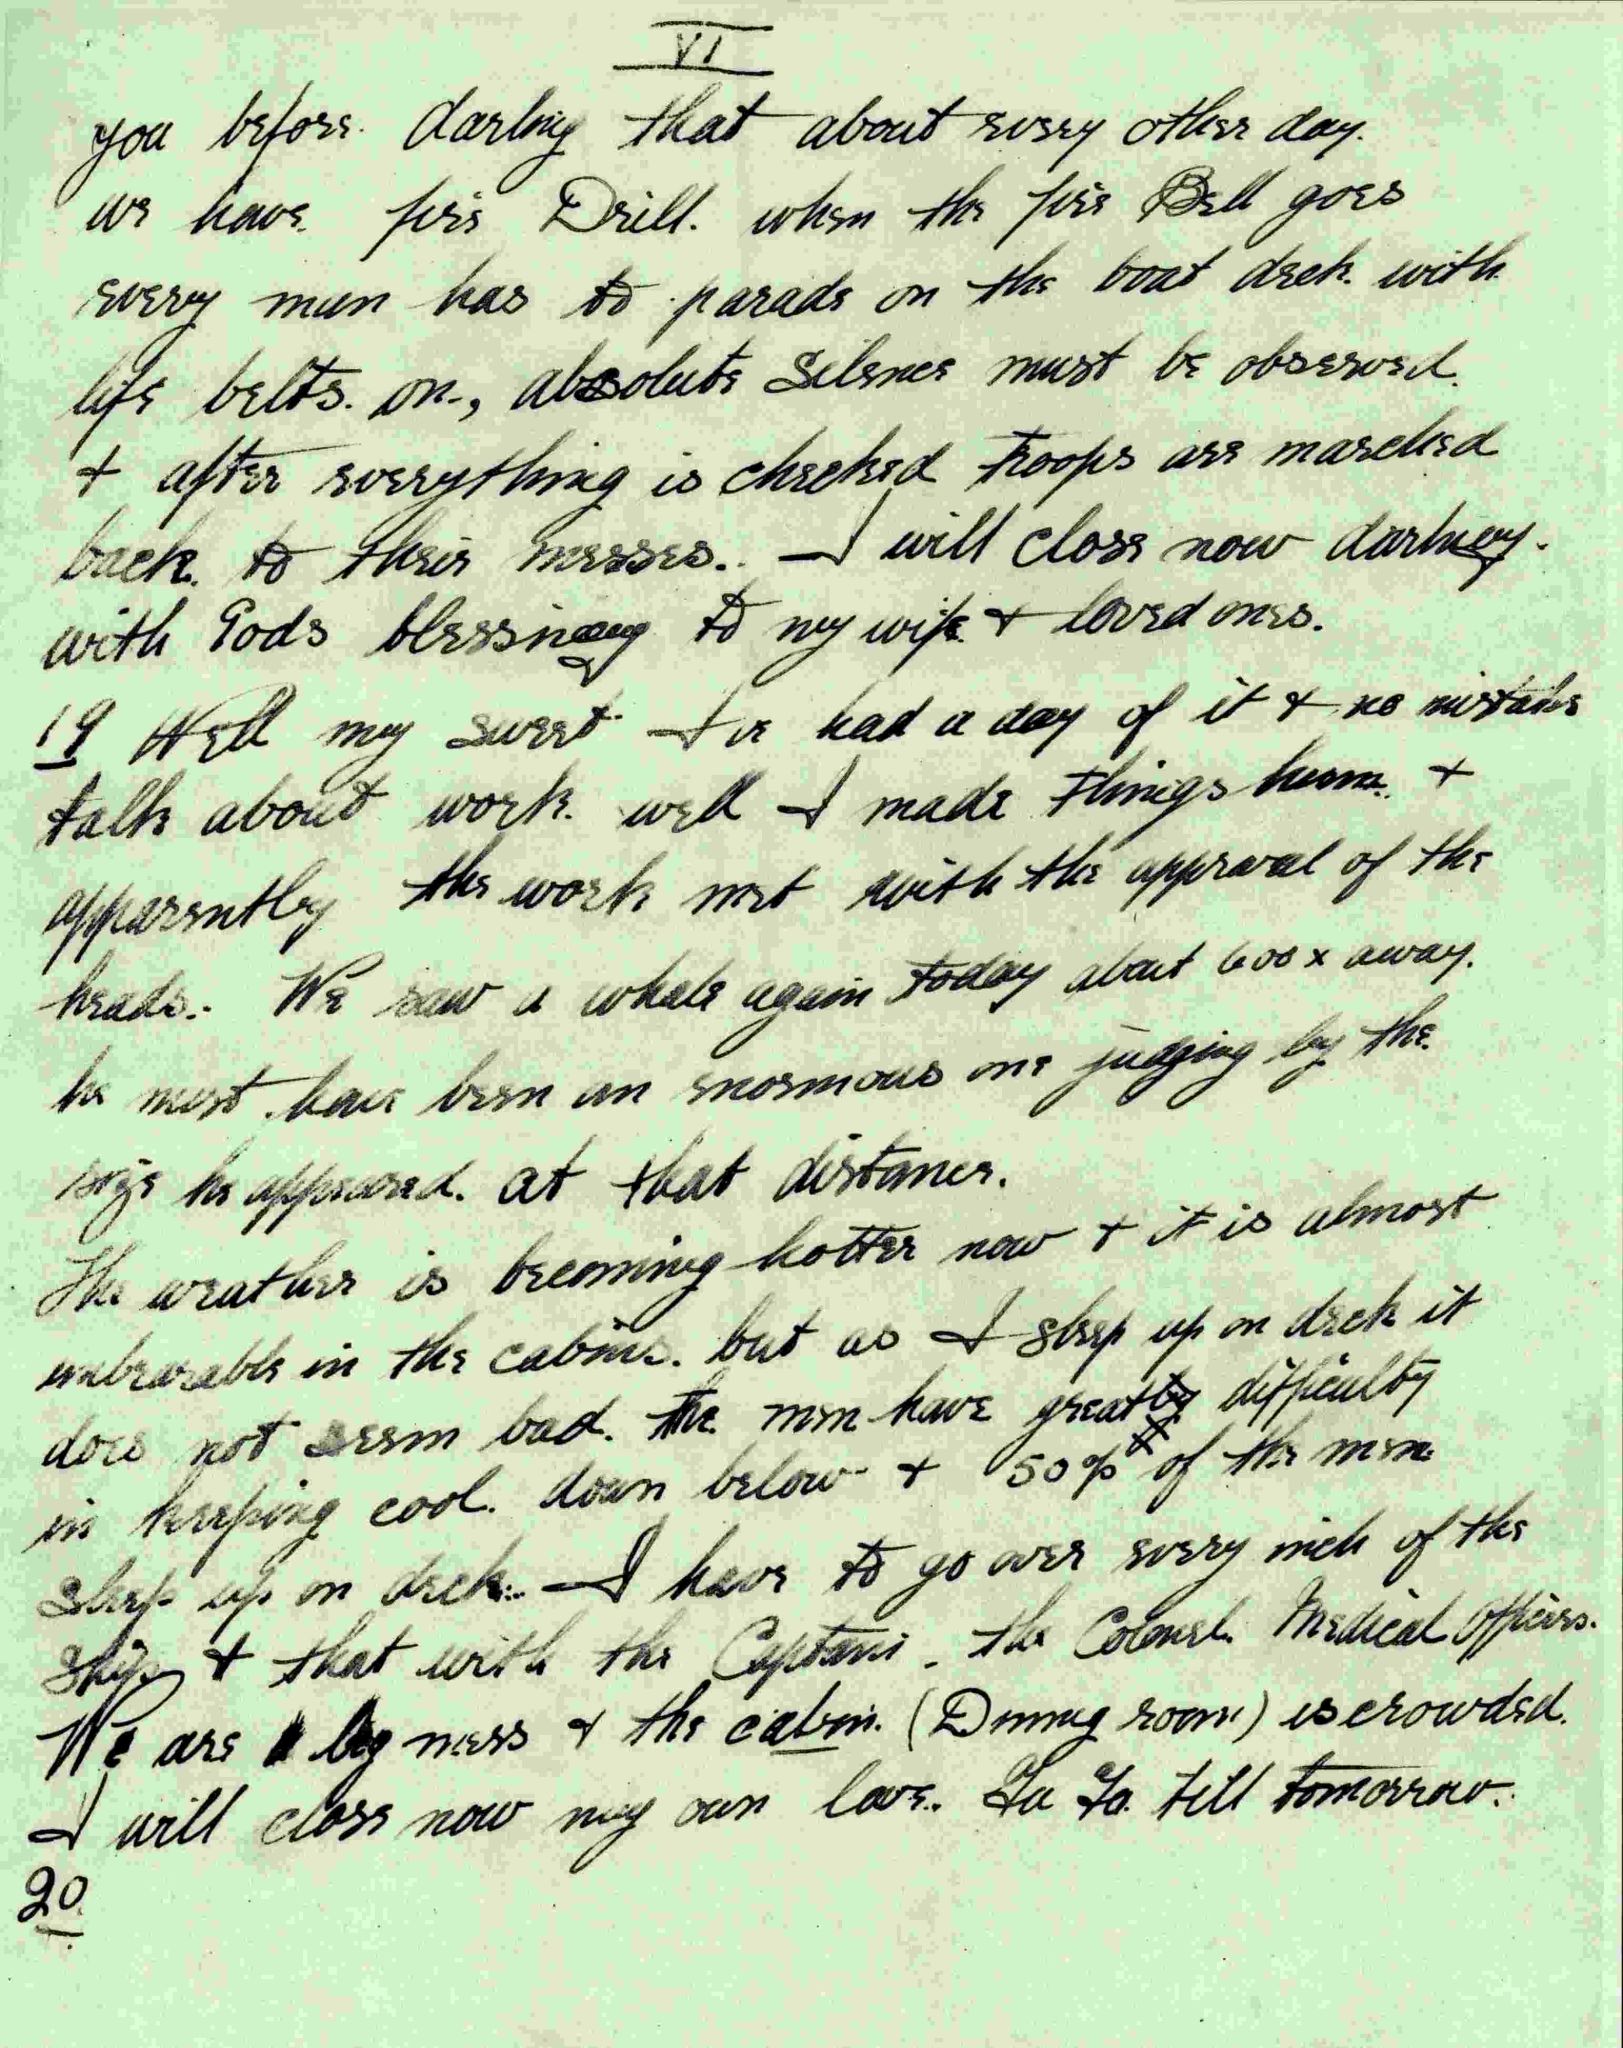 VI
you before. darling that about every other day.
we have. fire Drill. when the fire Bell goes
every man has to parade on the boat deck. with
life belts. on, absolute Silence must be observed.
+ after everything is checked troops are marched
back. to their messes. I will close now darling.
with Gods blessing to my wife. + loved ones.
19 Well my sweet I've had a day of it + no mistake
talk about work. well I made things hum. +
apparently the work met with the approval of the
heads. We saw a whale again today about 600 x away.
he must have been an enormous one judging by the
size he appeared. at that distance.
The weather is becoming hotter now + it is almost
unbearable in the cabins. but as I sleep up on deck it
does not seem bad. The men have great difficulty
in keeping cool. down below + 50% of the men
sleep up on deck. I have to go over every inch of the
ship + that with the Captain. the Colonel. Medical Officers.
We are big mess + the cabin. (Dining room) is crowded.
I will close now my own love. Ta Ta. till tomorrow.
20.